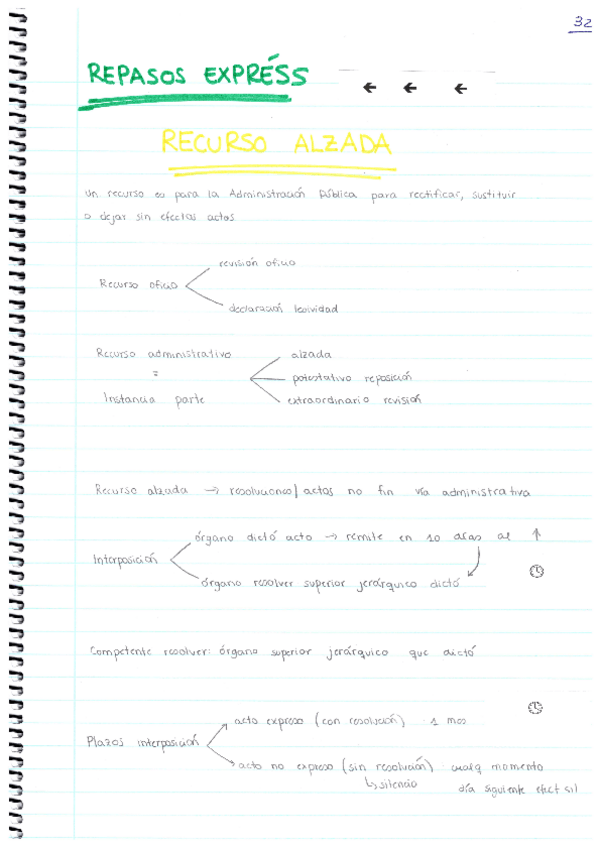 32
REPASOS EXPRÉSS
← ← ←
RECURSO ALZADA
Un recurso es para la Administración Pública para rectificar, sustituir
o dejar sin efectos actos
revisión oficio
Recurso oficio
declaración lesividad
Recurso administrativo
=
Instancia parte
alzada
potestativo reposición
extraordinario revisión
Recurso alzada → resoluciones/actos no fin vía administrativa
órgano dictó acto → remite en 10 días al ↑
Interposición
órgano resolver superior jerárquico dictó
Competente resolver: órgano superior jerárquico que dictó
acto expreso (con resolución) · 1 mes
Plazos interposición
acto no expreso (sin resolución) · cualq momento
↳ silencio día siguiente efect sil